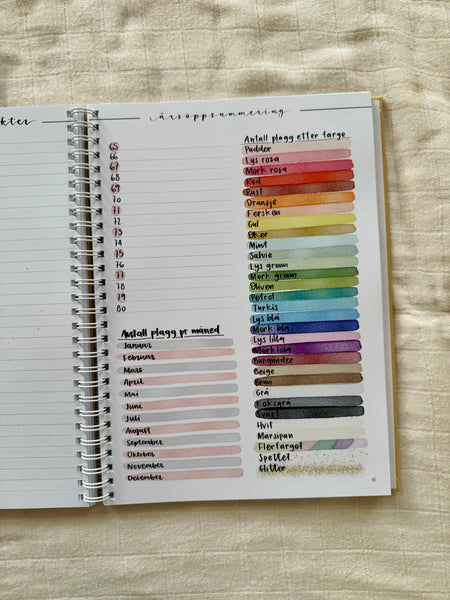 kter
årsoppsummering
65
66
67
68
69
70
71
72
73
74
75
76
77
78
79
80
Antall plagg pr måned
Januar
Februar
Mars
April
Mai
Juni
Juli
August
September
Oktober
November
Desember
Antall plagg etter farge
Pudder
Lys rosa
Mørk rosa
Rød
Rust
Oransje
Fersken
Gul
Oker
Mint
Salvie
Lys grønn
Mørk grønn
Oliven
Petrol
Turkis
Lys blå
Mørk blå
Lys lilla
Mørk lilla
Burgunder
Beige
Brun
Grå
Koksgrå
Svart
Hvit
Marsipan
Flerfarget
Spettet
Glitter